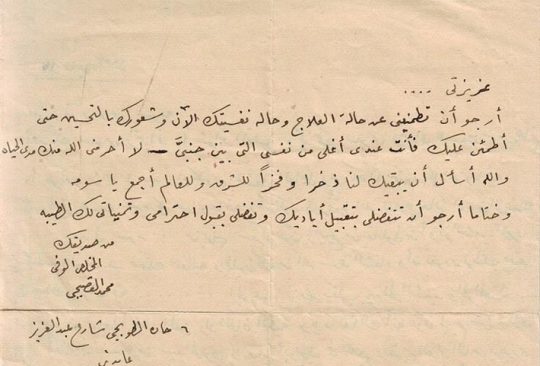 عزيزتي ....
أرجو أن تطمنيني عن حالة العلاج وحالة نفسيتك الآن وشعورك بالتحسين حتى
أطمئن عليك فأنت عندى أغلى من نفسى التى بين جنبيَّ – لا أحرمنى الله منك مدى الحياه
والله أسأل أن يبقيك لنا ذخرا وفخراً للشرق وللعالم أجمع يا سومه
وختاما أرجو أن تتفضلى بتقبيل أياديك وتفضلى بقبول احترامى وتمنياتى لك الطيبه
من صديقك
المخلص الوفى
محمد القصبجى
٦ حارة الطوبجى شارع عبد العزيز
عابدين